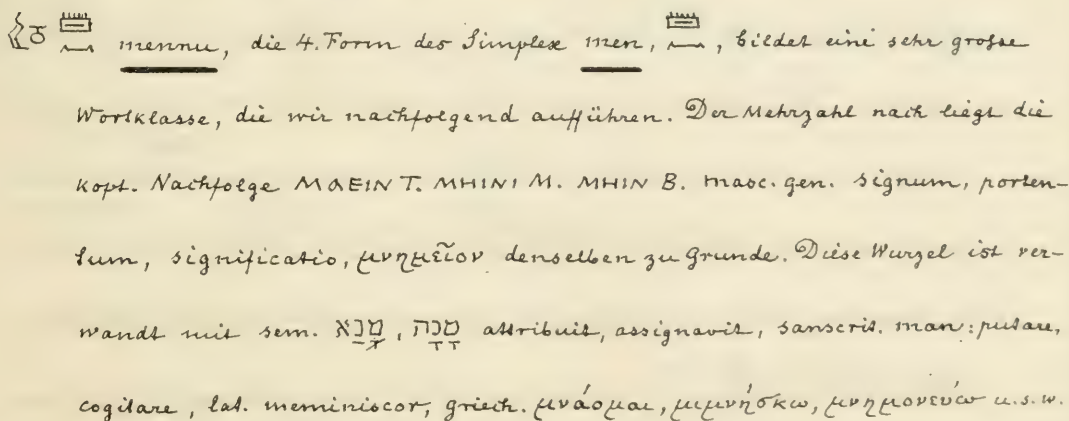 𓏠𓈖 mennu, die 4. Form des Simplex men, 𓏠𓈖, bildet eine sehr grosse
Wortklasse, die wir nachfolgend aufführen. Der Mehrzahl nach liegt die
kopt. Nachfolge ⲘⲀⲈⲒⲚ T. ⲘⲎⲒⲚⲒ M. ⲘⲎⲒⲚ B. masc. gen. signum, porten-
tum, significatio, μνημεῖον denselben zu Grunde. Diese Wurzel ist ver-
wandt mit sem. מְנָא, מָנָה attribuit, assignavit, sanscrit. man: putare,
cogitare, lat. meminiscor, griech. μνάομαι, μιμνήσκω, μνημονεύω u.s.w.